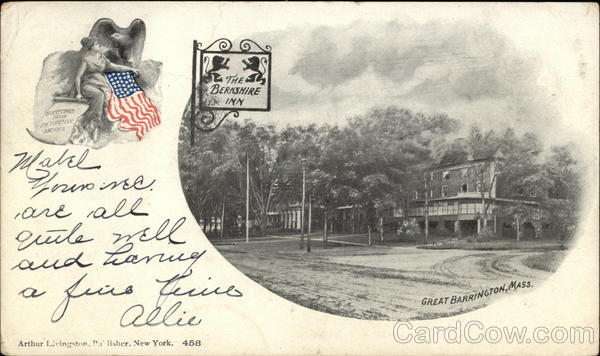 GREETINGS
FROM
PICTURESQUE
AMERICA
THE
BERKSHIRE
INN
Mabel
Yours rec.
are all
quite well
and having
a fine time
Allie
GREAT BARRINGTON, MASS.
Arthur Livingston, Publisher, New York. 458
CardCow.com